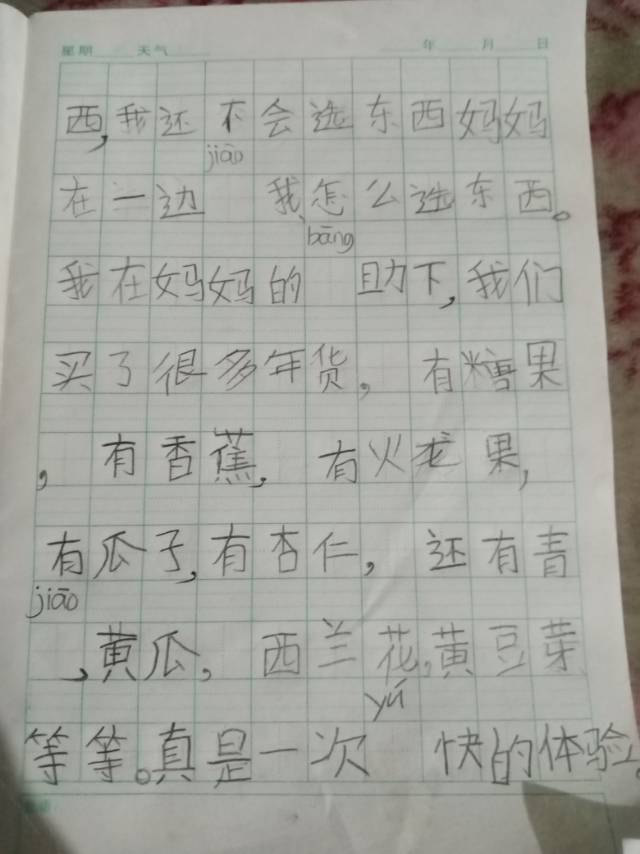 星期 天气 年 月 日
西,我还不会选东西妈妈
jiāo
在一边 我怎么选东西。
bāng
我在妈妈的 助下,我们
买了很多年货, 有糖果
, 有香蕉, 有火龙果,
有瓜子,有杏仁, 还有青
jiāo
,黄瓜, 西兰花,黄豆芽
yú
等等。真是一次 快的体验。